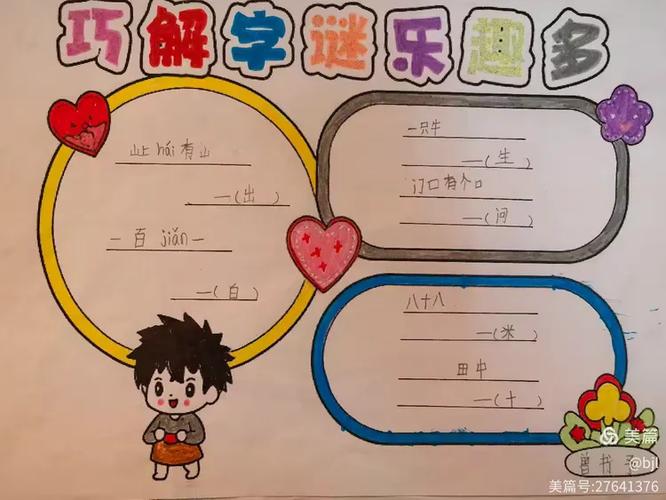 巧解字谜乐趣多
山上hái有山
—(出)
一百jiǎn一
—(白)
一只牛
—(生)
门口有个口
—(问)
八十八
—(米)
田中
—(十)
曾书子
美篇
@bjl
美篇号:27641376